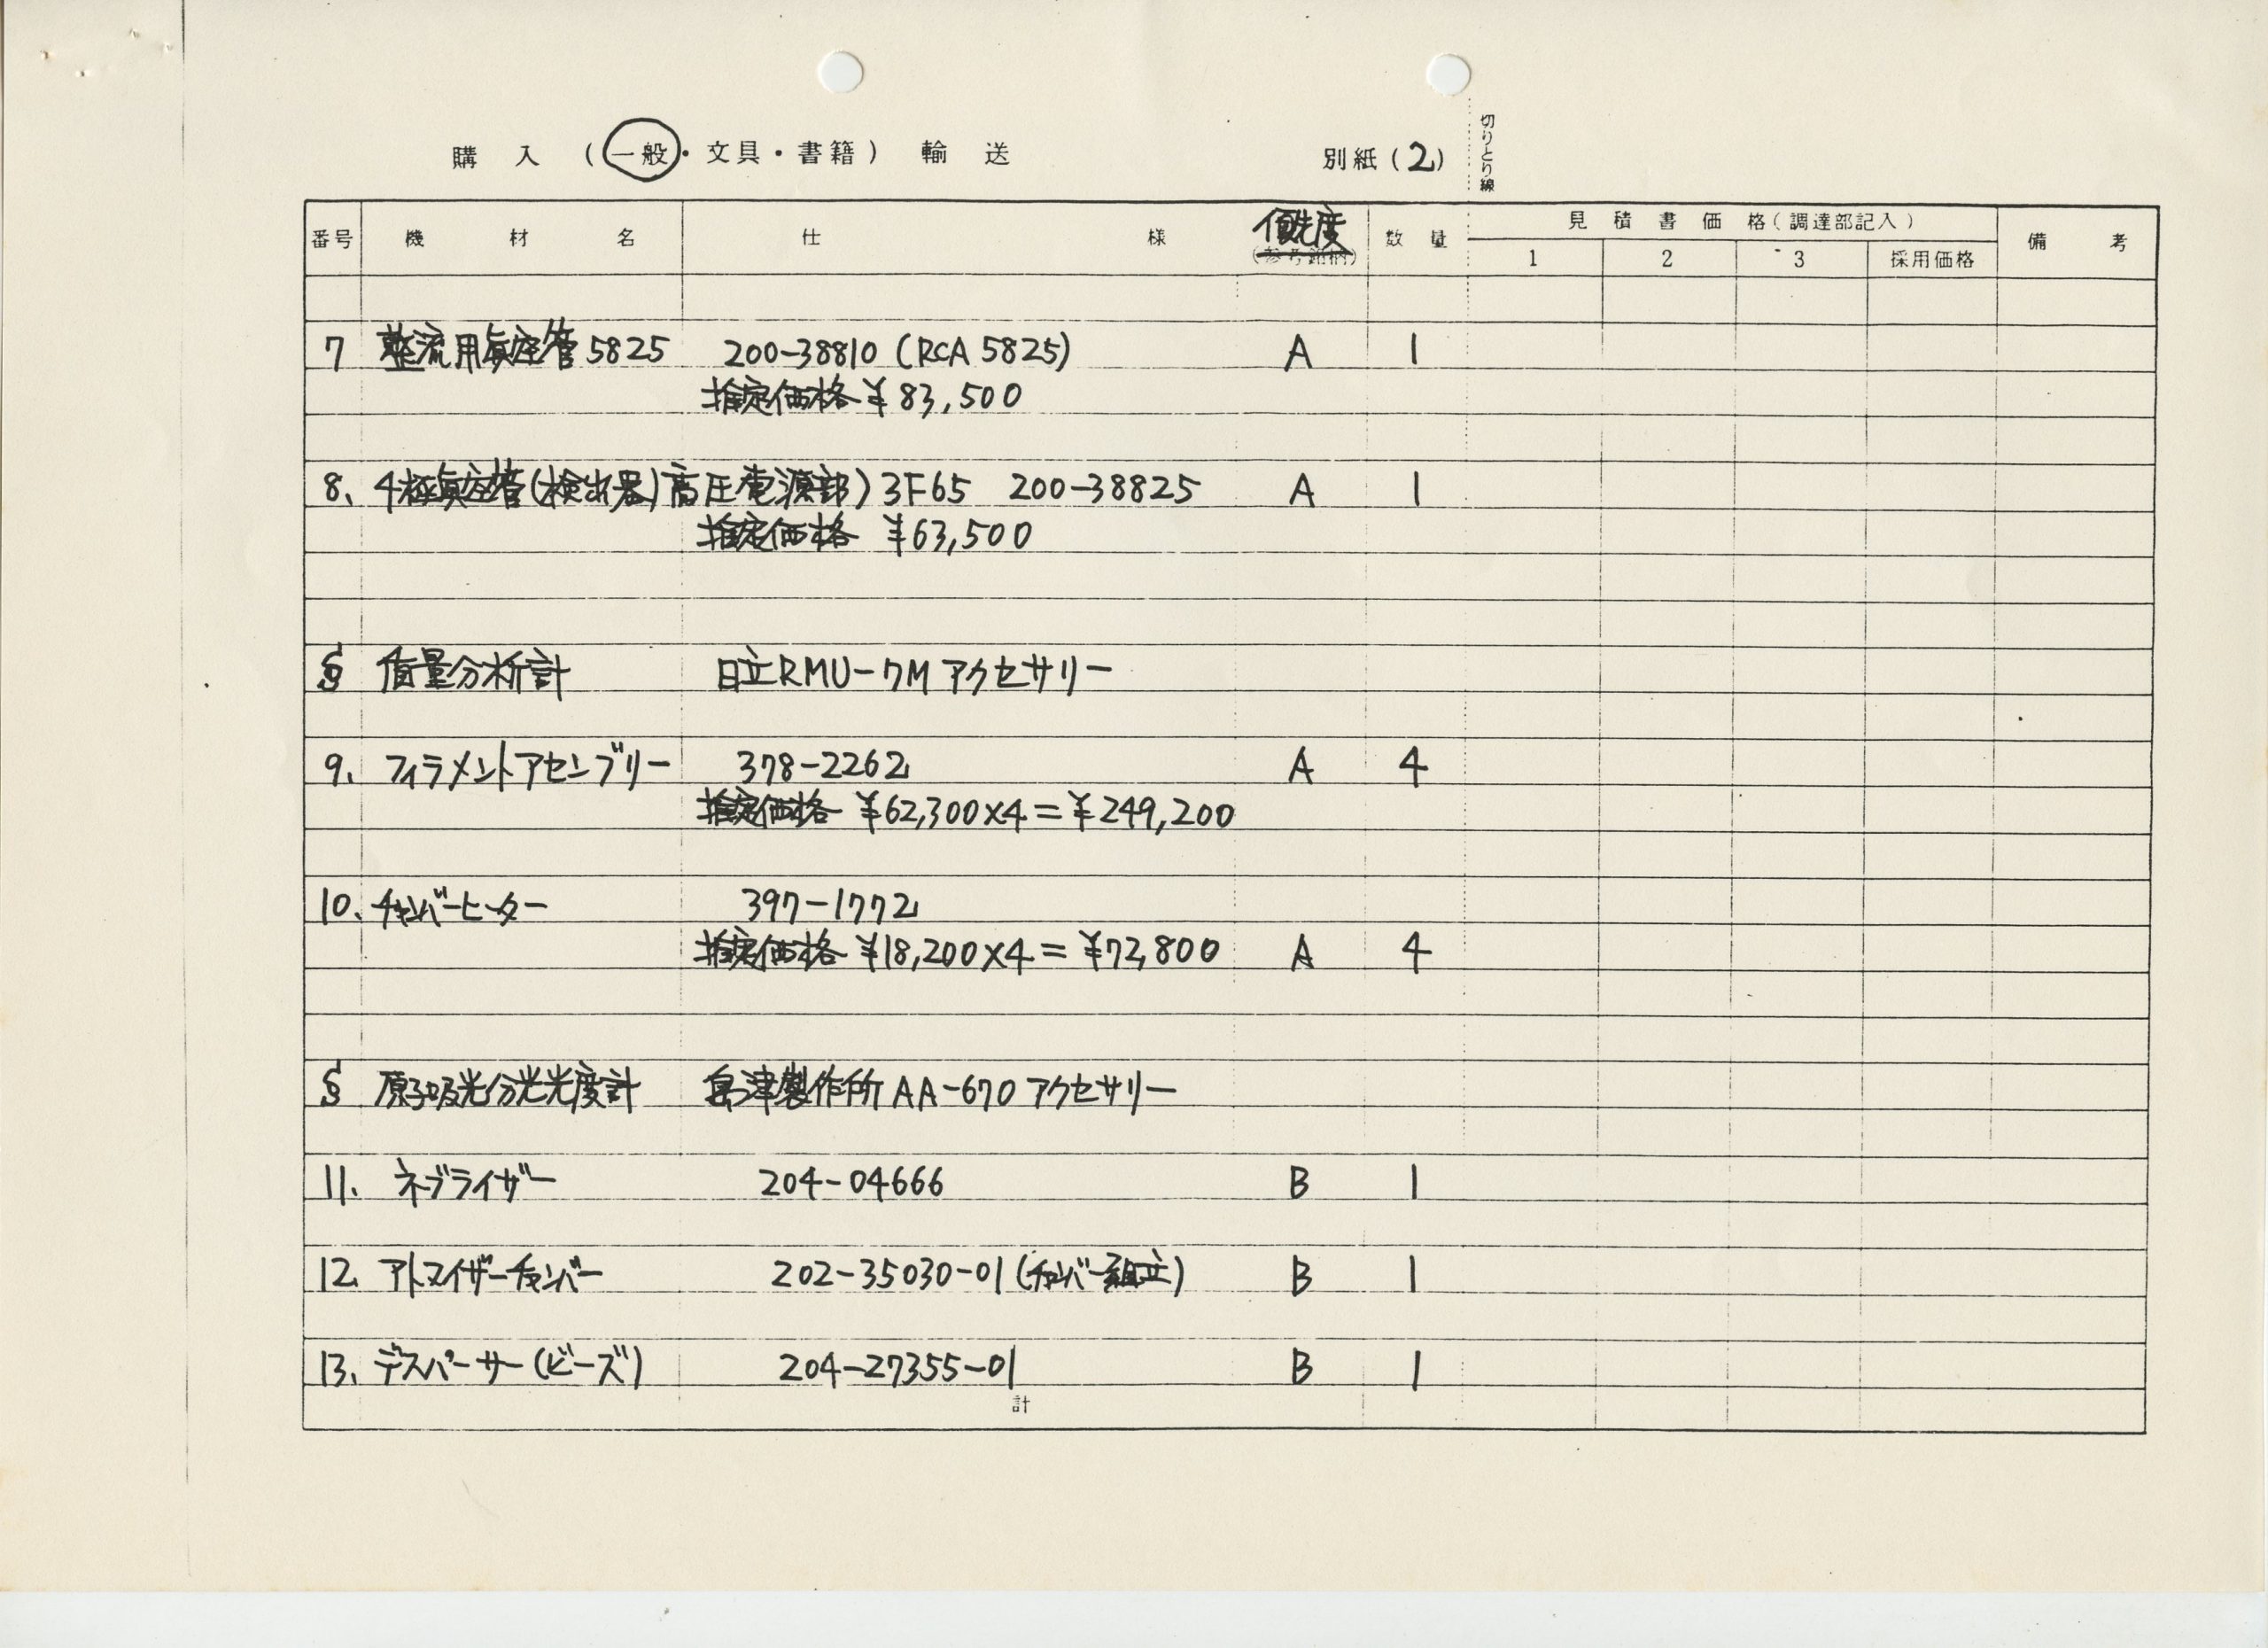 購入 (一般・文具・書籍) 輸送
別紙(2)
切りとり線
番号 機材名 仕様 優先度 (参考銘柄) 数量 見積書価格(調達部記入) 備考
1 2 3 採用価格
7 整流用眞空管5825 200-38810 (RCA 5825) A 1
推定価格 ¥83,500
8. 4極眞空管(検出器)高圧電源部) 3F65 200-38825 A 1
推定価格 ¥63,500
§ 質量分析計 日立RMU-7M アクセサリー
9. フィラメントアセンブリー 378-2262 A 4
推定価格 ¥62,300×4=¥249,200
10. チャンバーヒーター 397-1772
推定価格 ¥18,200×4=¥72,800 A 4
§ 原子吸光分光光度計 島津製作所 AA-670 アクセサリー
11. ネブライザー 204-04666 B 1
12. アトマイザーチャンバー 202-35030-01 (チャンバー組立) B 1
13. デスパーサー(ビーズ) 204-27355-01 B 1
計